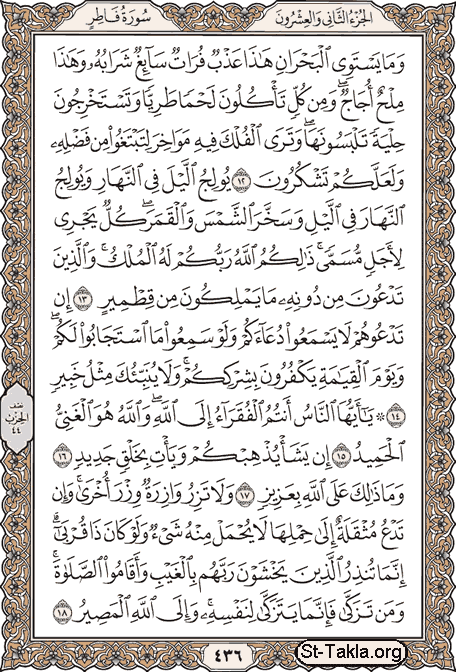 الجزء الثاني والعشرون
سورة فاطر
وَمَا يَسْتَوِي ٱلْبَحْرَانِ هَٰذَا عَذْبٌ فُرَاتٌ سَآئِغٌ شَرَابُهُۥ وَهَٰذَا
مِلْحٌ أُجَاجٌ ۖ وَمِن كُلٍّ تَأْكُلُونَ لَحْمًا طَرِيًّا وَتَسْتَخْرِجُونَ
حِلْيَةً تَلْبَسُونَهَا ۖ وَتَرَى ٱلْفُلْكَ فِيهِ مَوَاخِرَ لِتَبْتَغُوا۟ مِن فَضْلِهِۦ
وَلَعَلَّكُمْ تَشْكُرُونَ ١٢ يُولِجُ ٱلَّيْلَ فِي ٱلنَّهَارِ وَيُولِجُ
ٱلنَّهَارَ فِي ٱلَّيْلِ وَسَخَّرَ ٱلشَّمْسَ وَٱلْقَمَرَ ۖ كُلٌّ يَجْرِي
لِأَجَلٍ مُّسَمًّى ۚ ذَٰلِكُمُ ٱللَّهُ رَبُّكُمْ لَهُ ٱلْمُلْكُ ۚ وَٱلَّذِينَ
تَدْعُونَ مِن دُونِهِۦ مَا يَمْلِكُونَ مِن قِطْمِيرٍ ١٣ إِن
تَدْعُوهُمْ لَا يَسْمَعُوا۟ دُعَآءَكُمْ وَلَوْ سَمِعُوا۟ مَا ٱسْتَجَابُوا۟ لَكُمْ ۖ
وَيَوْمَ ٱلْقِيَٰمَةِ يَكْفُرُونَ بِشِرْكِكُمْ ۚ وَلَا يُنَبِّئُكَ مِثْلُ خَبِيرٍ
١٤ ۞ يَٰٓأَيُّهَا ٱلنَّاسُ أَنتُمُ ٱلْفُقَرَآءُ إِلَى ٱللَّهِ ۖ وَٱللَّهُ هُوَ ٱلْغَنِيُّ
ٱلْحَمِيدُ ١٥ إِن يَشَأْ يُذْهِبْكُمْ وَيَأْتِ بِخَلْقٍ جَدِيدٍ ١٦
وَمَا ذَٰلِكَ عَلَى ٱللَّهِ بِعَزِيزٍ ١٧ وَلَا تَزِرُ وَازِرَةٌ وِزْرَ أُخْرَىٰ ۚ وَإِن
تَدْعُ مُثْقَلَةٌ إِلَىٰ حِمْلِهَا لَا يُحْمَلْ مِنْهُ شَيْءٌ وَلَوْ كَانَ ذَا قُرْبَىٰٓ ۗ
إِنَّمَا تُنذِرُ ٱلَّذِينَ يَخْشَوْنَ رَبَّهُم بِٱلْغَيْبِ وَأَقَامُوا۟ ٱلصَّلَوٰةَ ۚ
وَمَن تَزَكَّىٰ فَإِنَّمَا يَتَزَكَّىٰ لِنَفْسِهِۦ ۚ وَإِلَى ٱللَّهِ ٱلْمَصِيرُ ١٨
الحزب
٤٤
٤٣٦
St-Takla.org